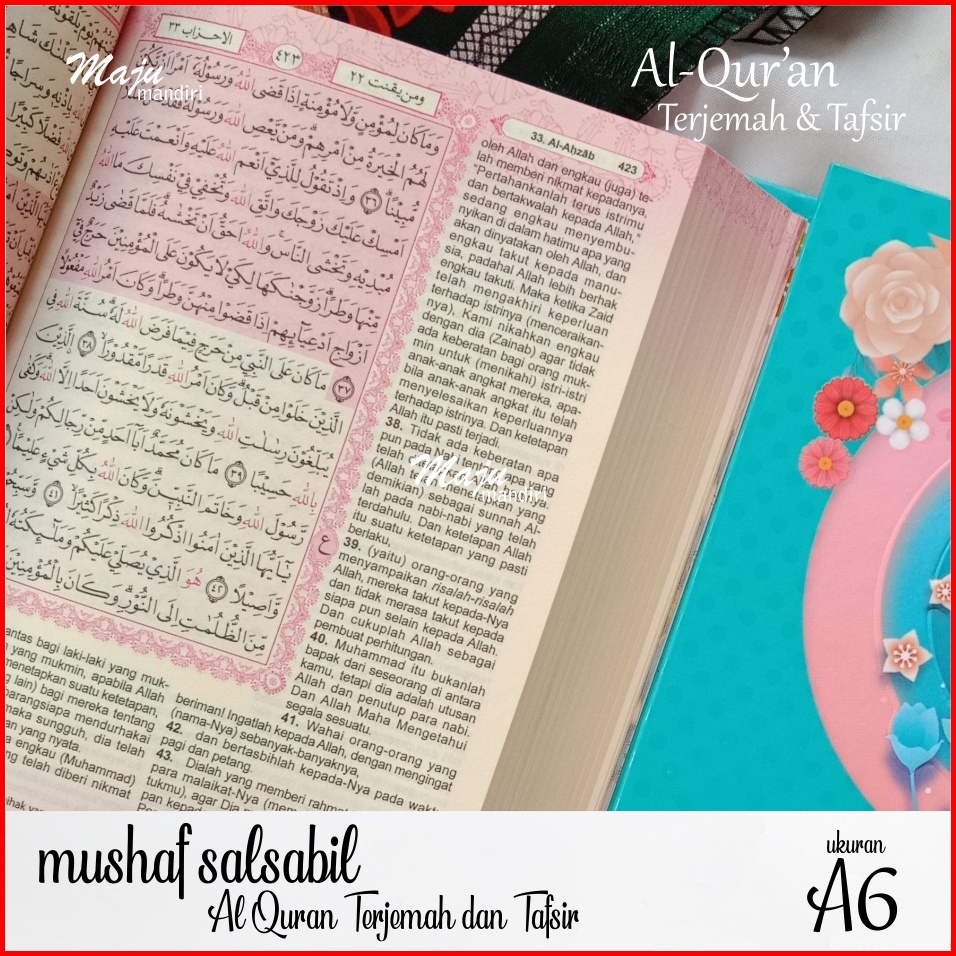 Maju
mandiri
Al-Qur'an
Terjemah & Tafsir
الاحزاب ٣٣
٤٢٣
ومن يقنت ٢٢
33. Al-Aḥzāb 423
وَمَا كَانَ لِمُؤْمِنٍ وَّلَا مُؤْمِنَةٍ اِذَا قَضَى اللّٰهُ وَرَسُوْلُهٗٓ اَمْرًا اَنْ يَّكُوْنَ
لَهُمُ الْخِيَرَةُ مِنْ اَمْرِهِمْ ۗوَمَنْ يَّعْصِ اللّٰهَ وَرَسُوْلَهٗ
مُّبِيْنًا ٣٦ وَاِذْ تَقُوْلُ لِلَّذِيْٓ اَنْعَمَ اللّٰهُ عَلَيْهِ وَاَنْعَمْتَ عَلَيْهِ
اَمْسِكْ عَلَيْكَ زَوْجَكَ وَاتَّقِ اللّٰهَ وَتُخْفِيْ فِيْ نَفْسِكَ مَا اللّٰهُ
مُبْدِيْهِ وَتَخْشَى النَّاسَۚ وَاللّٰهُ اَحَقُّ اَنْ تَخْشٰىهُ ۗ فَلَمَّا قَضٰى زَيْدٌ
مِّنْهَا وَطَرًاۗ زَوَّجْنٰكَهَا لِكَيْ لَا يَكُوْنَ عَلَى الْمُؤْمِنِيْنَ حَرَجٌ فِيْٓ
اَزْوَاجِ اَدْعِيَاۤىِٕهِمْ اِذَا قَضَوْا مِنْهُنَّ وَطَرًاۗ وَكَانَ اَمْرُ اللّٰهِ مَفْعُوْلًا
٣٧ مَا كَانَ عَلَى النَّبِيِّ مِنْ حَرَجٍ فِيْمَا فَرَضَ اللّٰهُ لَهٗ ۗسُنَّةَ اللّٰهِ فِى
الَّذِيْنَ خَلَوْا مِنْ قَبْلُ ۗوَكَانَ اَمْرُ اللّٰهِ قَدَرًا مَّقْدُوْرًاۙ ٣٨ ۨالَّذِيْنَ
يُبَلِّغُوْنَ رِسٰلٰتِ اللّٰهِ وَيَخْشَوْنَهٗ وَلَا يَخْشَوْنَ اَحَدًا اِلَّا اللّٰهَ ۗوَكَفٰى
بِاللّٰهِ حَسِيْبًا ٣٩ مَا كَانَ مُحَمَّدٌ اَبَآ اَحَدٍ مِّنْ رِّجَالِكُمْ وَلٰكِنْ
رَّسُوْلَ اللّٰهِ وَخَاتَمَ النَّبِيّٖنَۗ وَكَانَ اللّٰهُ بِكُلِّ شَيْءٍ عَلِيْمًا
يٰٓاَيُّهَا الَّذِيْنَ اٰمَنُوا اذْكُرُوا اللّٰهَ ذِكْرًا كَثِيْرًاۙ ٤١ وَّسَبِّحُوْهُ
وَّاَصِيْلًا ٤٢ هُوَ الَّذِيْ يُصَلِّيْ عَلَيْكُمْ وَمَلٰۤىِٕكَتُهٗ
مِّنَ الظُّلُمٰتِ اِلَى النُّوْرِۗ وَكَانَ بِالْمُؤْمِنِيْنَ
ع
oleh Allah dan engkau (juga) te-
lah memberi nikmat kepadanya,
"Pertahankanlah terus istrimu
dan bertakwalah kepada Allah,"
sedang engkau menyembu-
nyikan di dalam hatimu apa yang
akan dinyatakan oleh Allah, dan
engkau takut kepada manu-
sia, padahal Allah lebih berhak
engkau takuti. Maka ketika Zaid
telah mengakhiri keperluan
terhadap istrinya (menceraikan-
nya), Kami nikahkan engkau
dengan dia (Zainab) agar tidak
ada keberatan bagi orang muk-
min untuk (menikahi) istri-istri
anak-anak angkat mereka, apa-
bila anak-anak angkat itu telah
menyelesaikan keperluannya
terhadap istrinya. Dan ketetapan
Allah itu pasti terjadi.
38. Tidak ada keberatan apa
pun pada Nabi tentang apa yang
telah ditetapkan yang
(Allah
demikian) sebagai sunnah Al-
lah pada nabi-nabi yang telah
terdahulu. Dan ketetapan Allah
itu suatu ketetapan yang pasti
berlaku,
39. (yaitu) orang-orang yang
menyampaikan risalah-risalah
Allah, mereka takut kepada-Nya
dan tidak merasa takut kepada
siapa pun selain kepada Allah.
Dan cukuplah Allah sebagai
pembuat perhitungan.
40. Muhammad itu bukanlah
bapak dari seseorang di antara
kamu, tetapi dia adalah utusan
Allah dan penutup para nabi.
Dan Allah Maha Mengetahui
segala sesuatu.
41. Wahai orang-orang yang
beriman! Ingatlah kepada Allah, dengan mengingat
(nama-Nya) sebanyak-banyaknya,
42. dan bertasbihlah kepada-Nya pada waktu
pagi dan petang.
43. Dialah yang memberi rahmat
para malaikat-Nya
tukmu), agar Dia
Maju
mandiri
antas bagi laki-laki yang muk-
yang mukmin, apabila Allah
menetapkan suatu ketetapan,
lain) bagi mereka tentang
barangsiapa mendurhakai
maka sungguh, dia telah
an yang nyata.
engkau (Muhammad)
ng telah diberi nikmat
mushaf salsabil
Al Quran Terjemah dan Tafsir
ukuran
A6